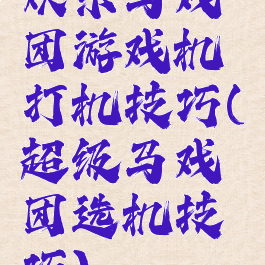 马戏
团游戏机
打机技巧(
超级马戏
团选机技
巧)